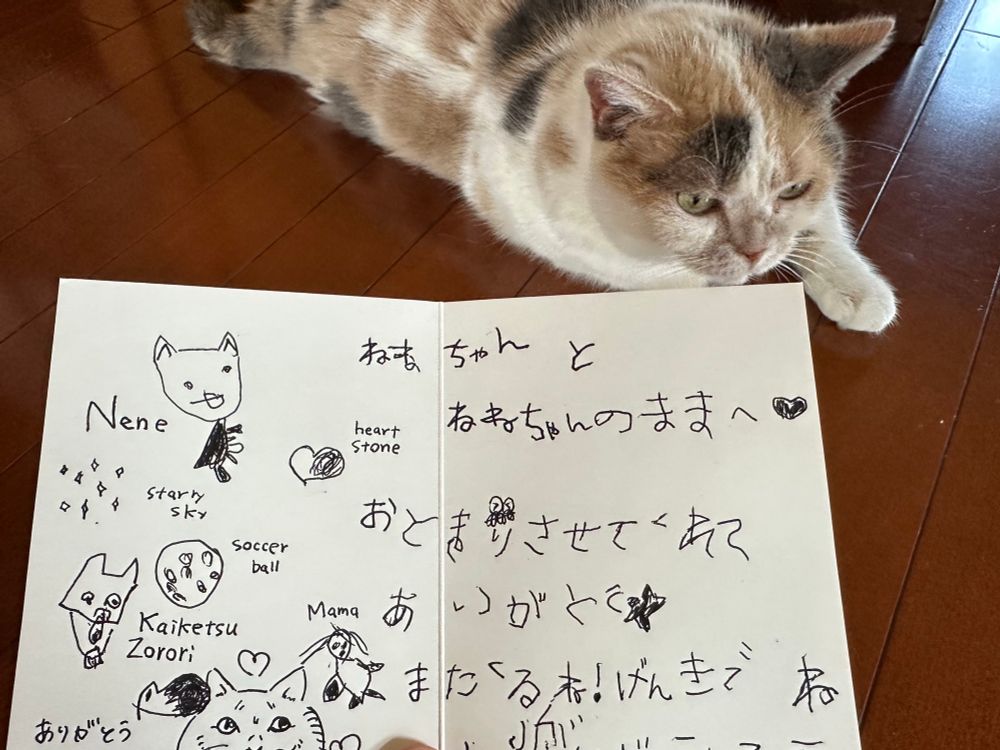 Nene
heart
stone
starry
sky
soccer
ball
Kaiketsu
Zorori
Mama
ありがとう
ねねちゃんと
ねねちゃんのままへ
おとまりさせてくれて
ありがとう
またくるね！げんきでね